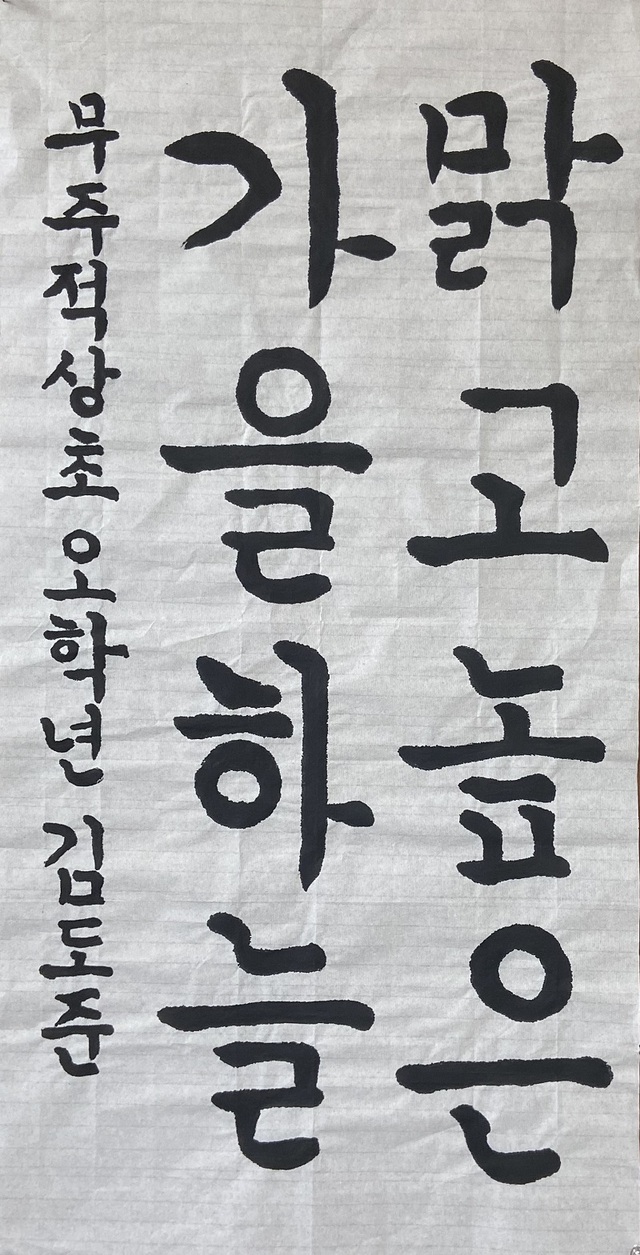 맑고높은
가을하늘
무주적상초오학년 김도준